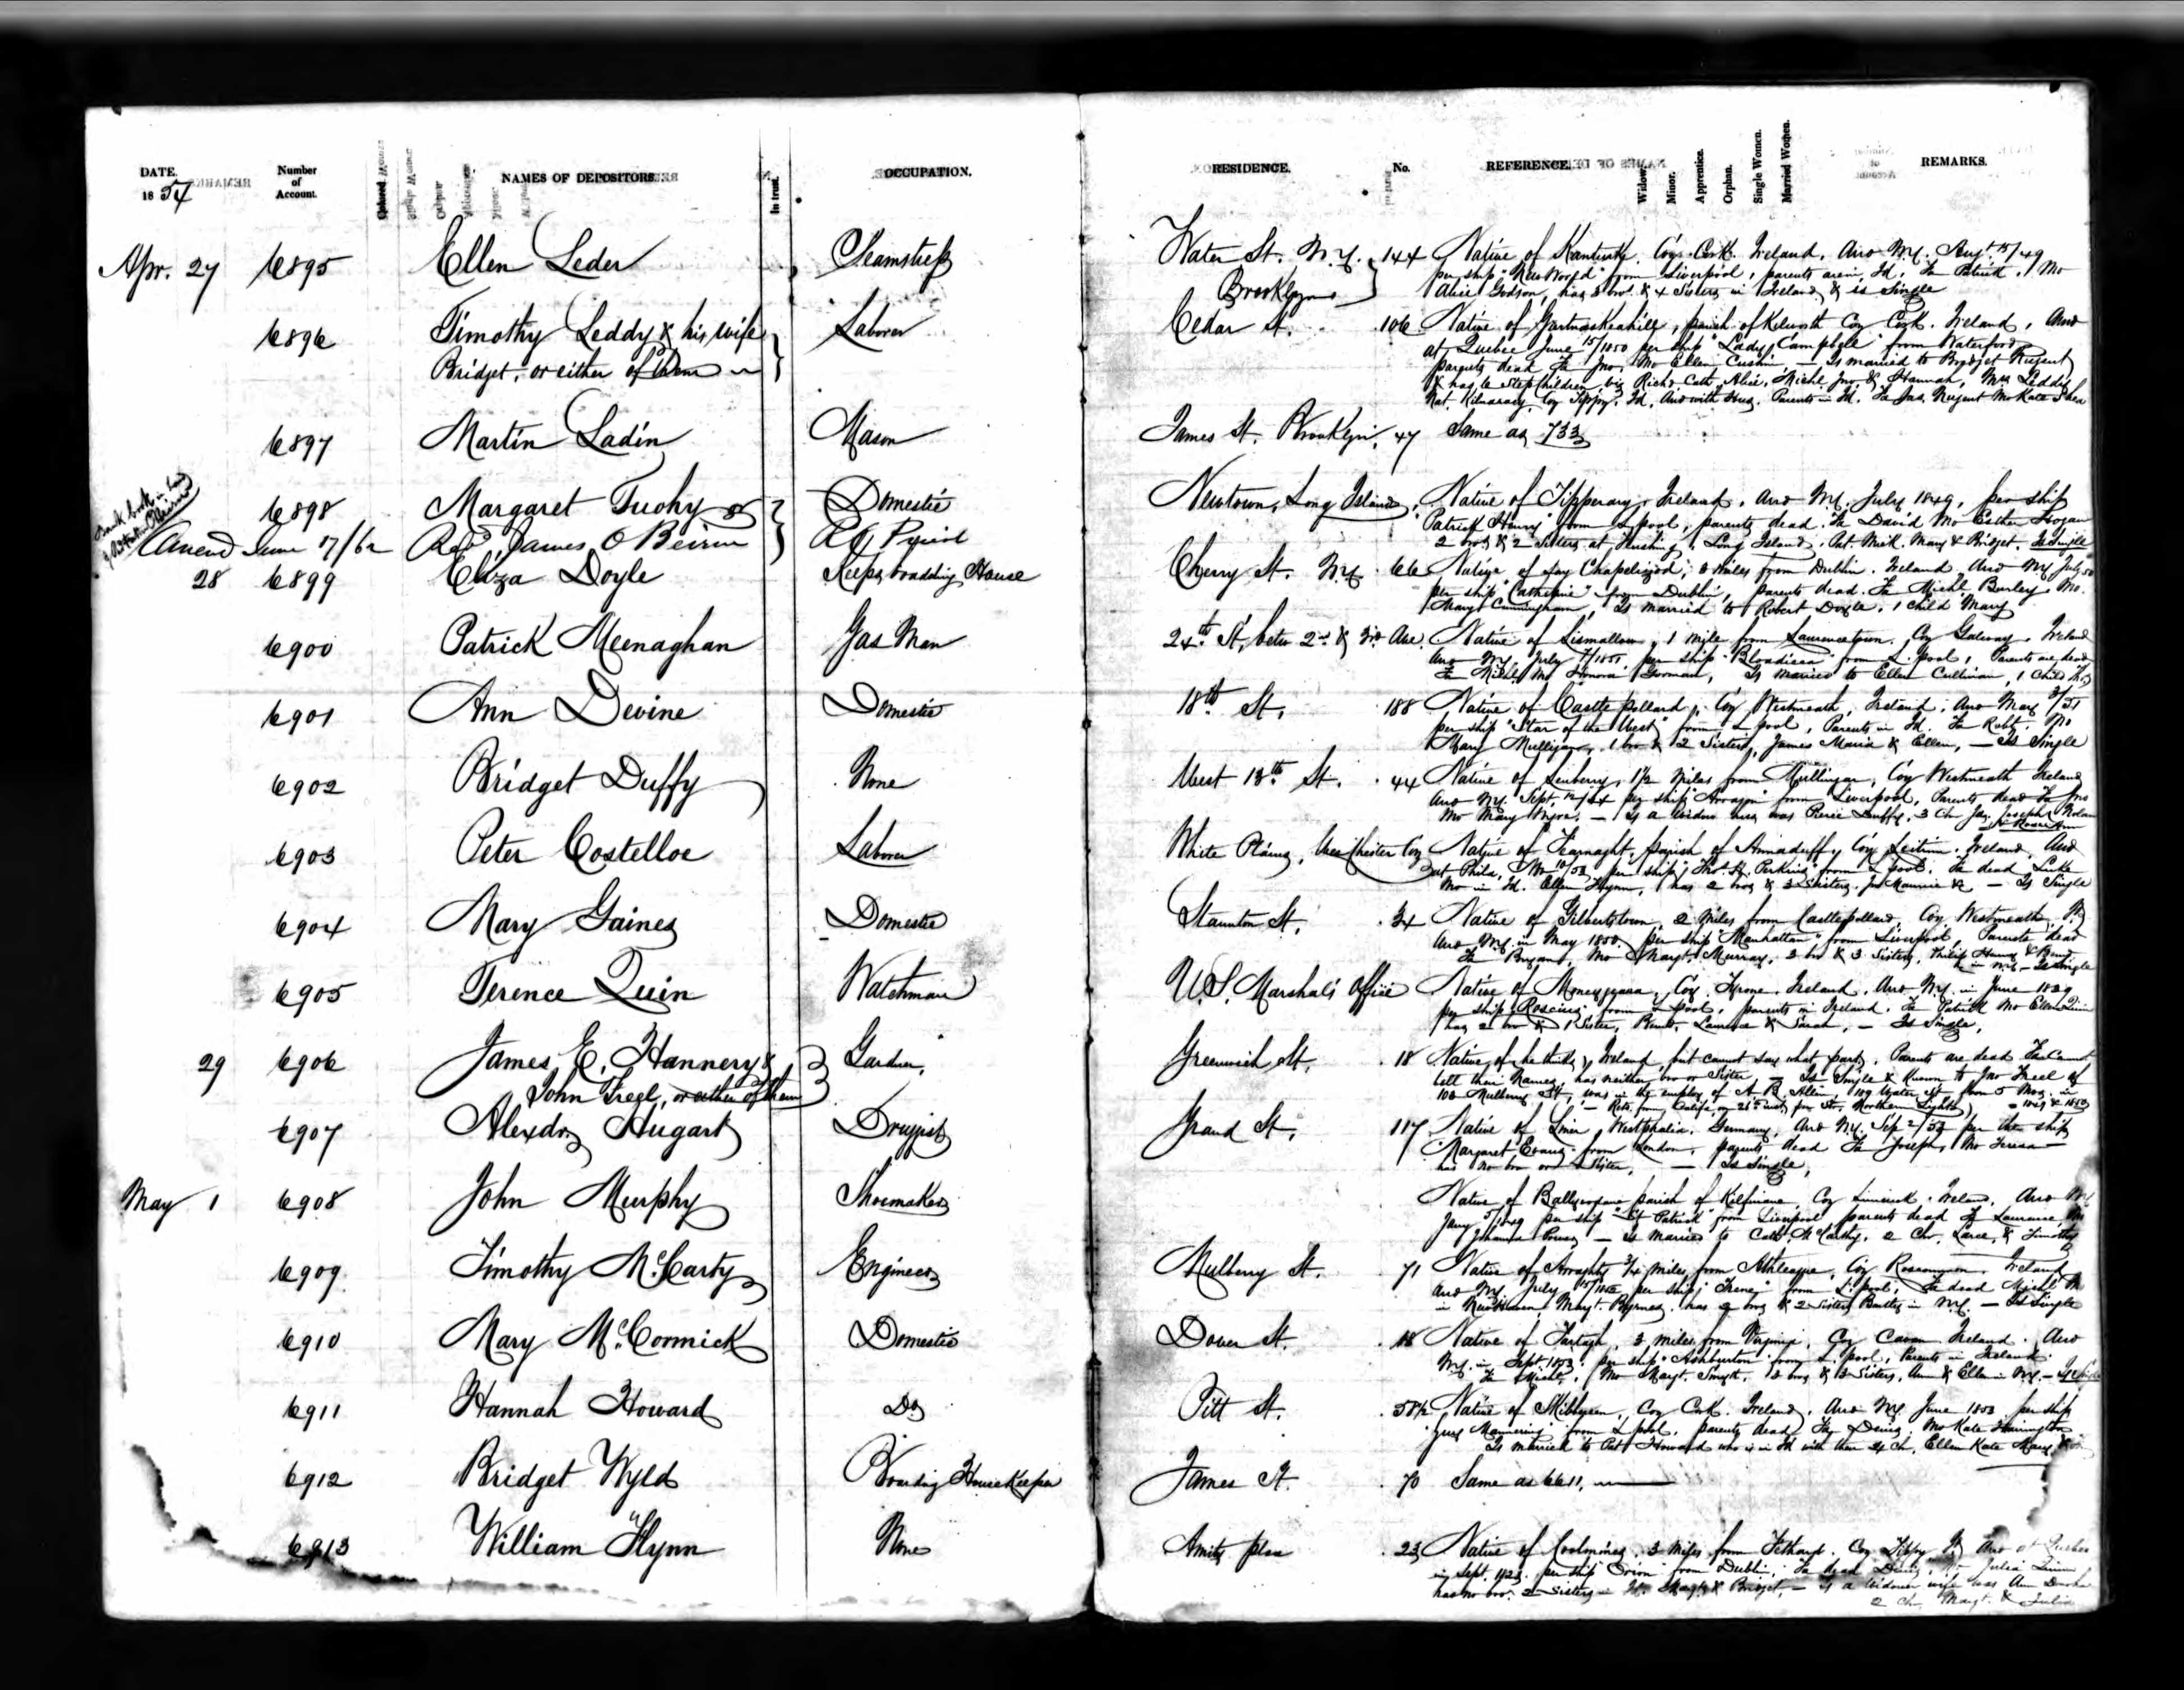 DATE. Number of Account. NAMES OF DEPOSITORS. In trust. OCCUPATION. RESIDENCE. No. REFERENCE. Widow. Minor. Apprentice. Orphan. Single Women. Married Women. REMARKS.
1854
Apr. 27 6895 Ellen Leder Seamstress Water St. N.Y. 144 Native of Kanturk, Coy Cork. Ireland. Arrd N.Y. Augt. 15/49
per ship "New World" from Liverpool, parents are in Id. Fa Patrick, Mo
Brooklyn Alice Godson, has 3 bro. & 4 Sisters in Ireland & is Single
6896 Timothy Leddy & his wife Laborer Cedar St. 106 Native of parish of Kilworth Coy Cork. Ireland, Arrd
Bridget, or either of them at Quebec June 15/1850 per ship "Lady Campbell" from Waterford
parents dead Fa Jno, Mo Ellen Cushin, — Is married to Bridget Nugent
& has 6 Step Children, viz Richd. Cath. Alice, Michl. Jno & Hannah, Mrs Leddy
Nat. Coy Tippy. Id. Arrd with Husb. Parents in Id. Fa Jas. Nugent Mo Kate Shea
6897 Martin Ladin Mason James St. Brooklyn, 47 Same as 733
Bank book in
6898 Margaret Tuohy or Domestic Newtown, Long Island, Native of Tipperary, Ireland. Arrd N.Y. July 1849, per ship
"Patrick Henry" from L.pool, parents dead. Fa David Mo Esther Hogan
Amend June 17/62 Revd. James O Beirne R.C. Priest 2 bros & 2 Sisters at Flushing, Long Island. Pat. Mick. Mary & Bridget. Is Single
28 6899 Eliza Doyle Keeps boarding House Cherry St. N.Y. 66 Native of Chapelizod, miles from Dublin. Ireland Arrd N.Y. July 50
per ship "Catherine" from Dublin, parents dead. Fa Michl. Mo.
Mary Cunningham, Is married to Robert Doyle. 1 child Mary
6900 Patrick Meenaghan Gas Man 24th St. betw 2nd & 3rd Ave. Native of Lismallow, 1 mile from Laurencetown. Coy Galway. Ireland
Arrd N.Y. July 7/1851. per ship from L.pool, Parents are dead
Fa Michl. Mo Honora Gorman, Is married to Ellen Cullinan, 1 Child
6901 Ann Devine Domestic 18th St. 188 Native of Castle pollard, Coy Westmeath, Ireland. Arrd May 51
per ship "Star of the West" from L.pool, Parents in Id. Fa Robt. Mo
Mary Mulligan, 1 bro & 2 Sisters, James Maria & Ellen, — Is Single
6902 Bridget Duffy None West 13th St. 44 Native of 1½ miles from Mullingar, Coy Westmeath Ireland
Arrd N.Y. Sept. per ship from Liverpool, Parents dead Fa Jno
Mo Mary — Is a Widow husb was Duffy. 3 Ch Jas, Joseph
6903 Peter Costelloe Laborer White Plains, West Chester Coy Native of parish of Annaduff, Coy Leitrim. Ireland, Arrd
at Phila. per ship "Thos. H. Perkins" from L.pool. Fa dead Luke
Mo in Id. Ellen Flynn, has 2 bros & 3 Sisters. — Is Single
6904 Mary Gaines Domestic Staunton St. 34 Native of Gilbertstown, 2 miles from Castlepollard, Coy Westmeath,
Arrd N.Y. in May 1850. per ship "Manhattan" from Liverpool, Parents dead
Fa Bryan, Mo Margt. Murray. 3 bro & 3 Sisters, Philip in N.Y. — Is Single
6905 Terence Quin Watchman U.S. Marshal's Office Native of Coy Tyrone. Ireland. Arrd N.Y. in June 1839
per ship "Roscius" from L.pool, parents in Ireland. Fa Patrick Mo Ellen Quin
has 2 bro & 1 Sister, Laurence & Sarah, — Is Single.
29 6906 James E. Hannery & Gardner, Greenwich St. 18 Native of he thinks, Ireland, but cannot say what part. Parents are dead
John Freel, or either of them tell their Names, has neither bro or Sister — Is Single & Known to Jno Freel of
108 Mulberry St, was in the employ of A. B. Allen, 189 Water St from 5 Mos. in
Northern Light
6907 Alexdr. Hugart Druggist Grand St. 117 Native of Westphalia, Germany, Arrd N.Y. Sep 2/53 per the ship
"Margaret Evans" from London. parents dead Fa Joseph, Mo
has no bro or Sister, — Is Single,
May 1 6908 John Murphy Shoemaker Native of parish of Kilfinane, Coy Limerick. Ireland, Arrd N.Y.
Jany 5/1849 per ship "St Patrick" from Liverpool parents dead Fa Laurence,
Johanna — is married to Cath. McCarthy. 2 Chn, & Timothy
6909 Timothy McCarty Engineer Mulberry St. 71 Native of miles from Athleague, Coy Roscommon. Ireland
Arrd N.Y. July per ship from L.pool, Fa dead Michl
Margt. Byrnes. has 2 bros & 2 Sisters in N.Y. — Is Single
6910 Mary McCormick Domestic Dover St. 18 Native of 3 miles from Virginia, Coy Cavan Ireland. Arrd
N.Y. in Sept. 1853. per ship "Ashburton" from L.pool, Parents in Ireland.
Fa Michl. Mo Margt. Smyth. 2 bros & 3 Sisters, Ann & Ellen in N.Y. — Is Single
6911 Hannah Howard Do Pitt St. 58½ Native of Skibbereen, Coy Cork. Ireland, Arrd N.Y. June 1853 per ship
"Guy Mannering" from L.pool. parents dead, Fa Denis. Mo Kate Harrington
Is married to Pat Howard who is in Id with Ellen Kate Mary
6912 Bridget Wyld Boarding House Keeper James St. 70 Same as 6611,
6913 William Flynn None Amity place 23 Native of 3 miles from Fethard. Coy Tippy. Arrd at Quebec
in Sept. 1823. per ship Orion from Dublin, Fa dead Julia
has no bro. 2 Sisters in Id. Margt & Bridget, — Is a Widower wife was Ann
2 Chn. Margt. & Julia